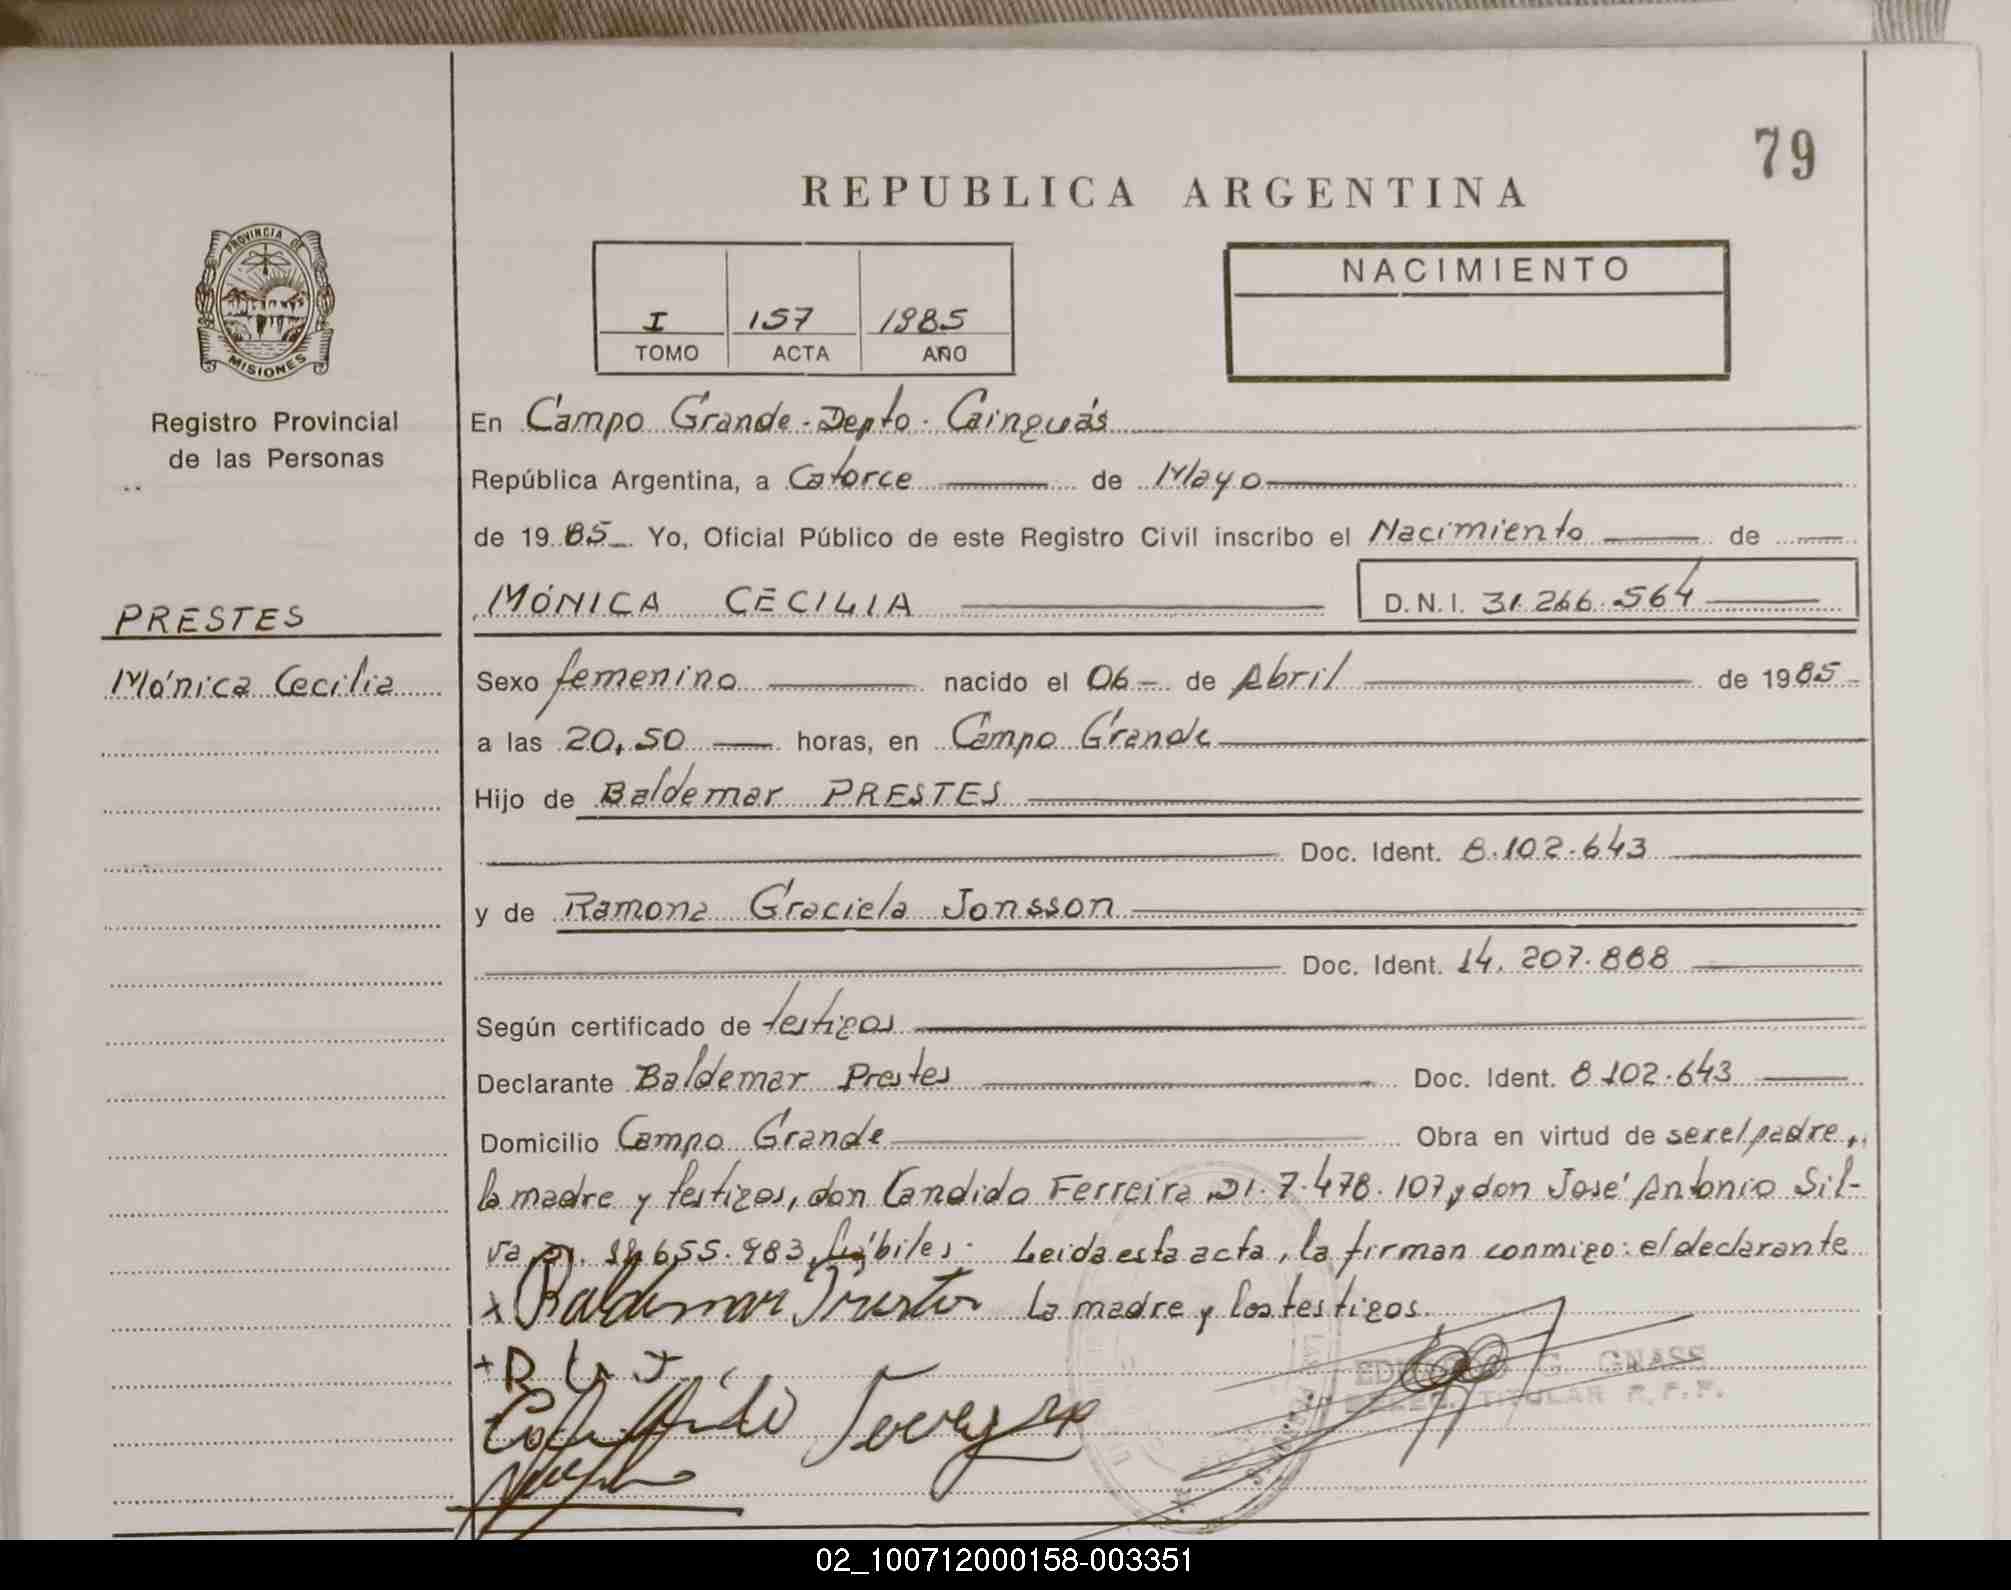 79
REPUBLICA ARGENTINA
PROVINCIA DE
MISIONES
Registro Provincial
de las Personas
I 157 1985
TOMO ACTA AÑO
NACIMIENTO
En Campo Grande - Depto. Cainguás
República Argentina, a Catorce de Mayo
de 1985 Yo, Oficial Público de este Registro Civil inscribo el Nacimiento de
MÓNICA CECILIA D.N.I. 31.266.564
PRESTES
Mónica Cecilia
Sexo femenino nacido el 06 de Abril de 1985
a las 20,50 horas, en Campo Grande
Hijo de Baldemar PRESTES
Doc. Ident. 8.102.643
y de Ramona Graciela Jonsson
Doc. Ident. 14.207.888
Según certificado de testigos
Declarante Baldemar Prestes Doc. Ident. 8.102.643
Domicilio Campo Grande Obra en virtud de ser el padre,
la madre y testigos, don Candido Ferreira DI. 7.478.107 y don José Antonio Sil-
va 655.983, hábiles. Leida esta acta, la firman conmigo: el declarante
x Baldemar Prestes La madre y los testigos.
+ R G J
G. GNASS
TITULAR R.P.P.
02_100712000158-003351